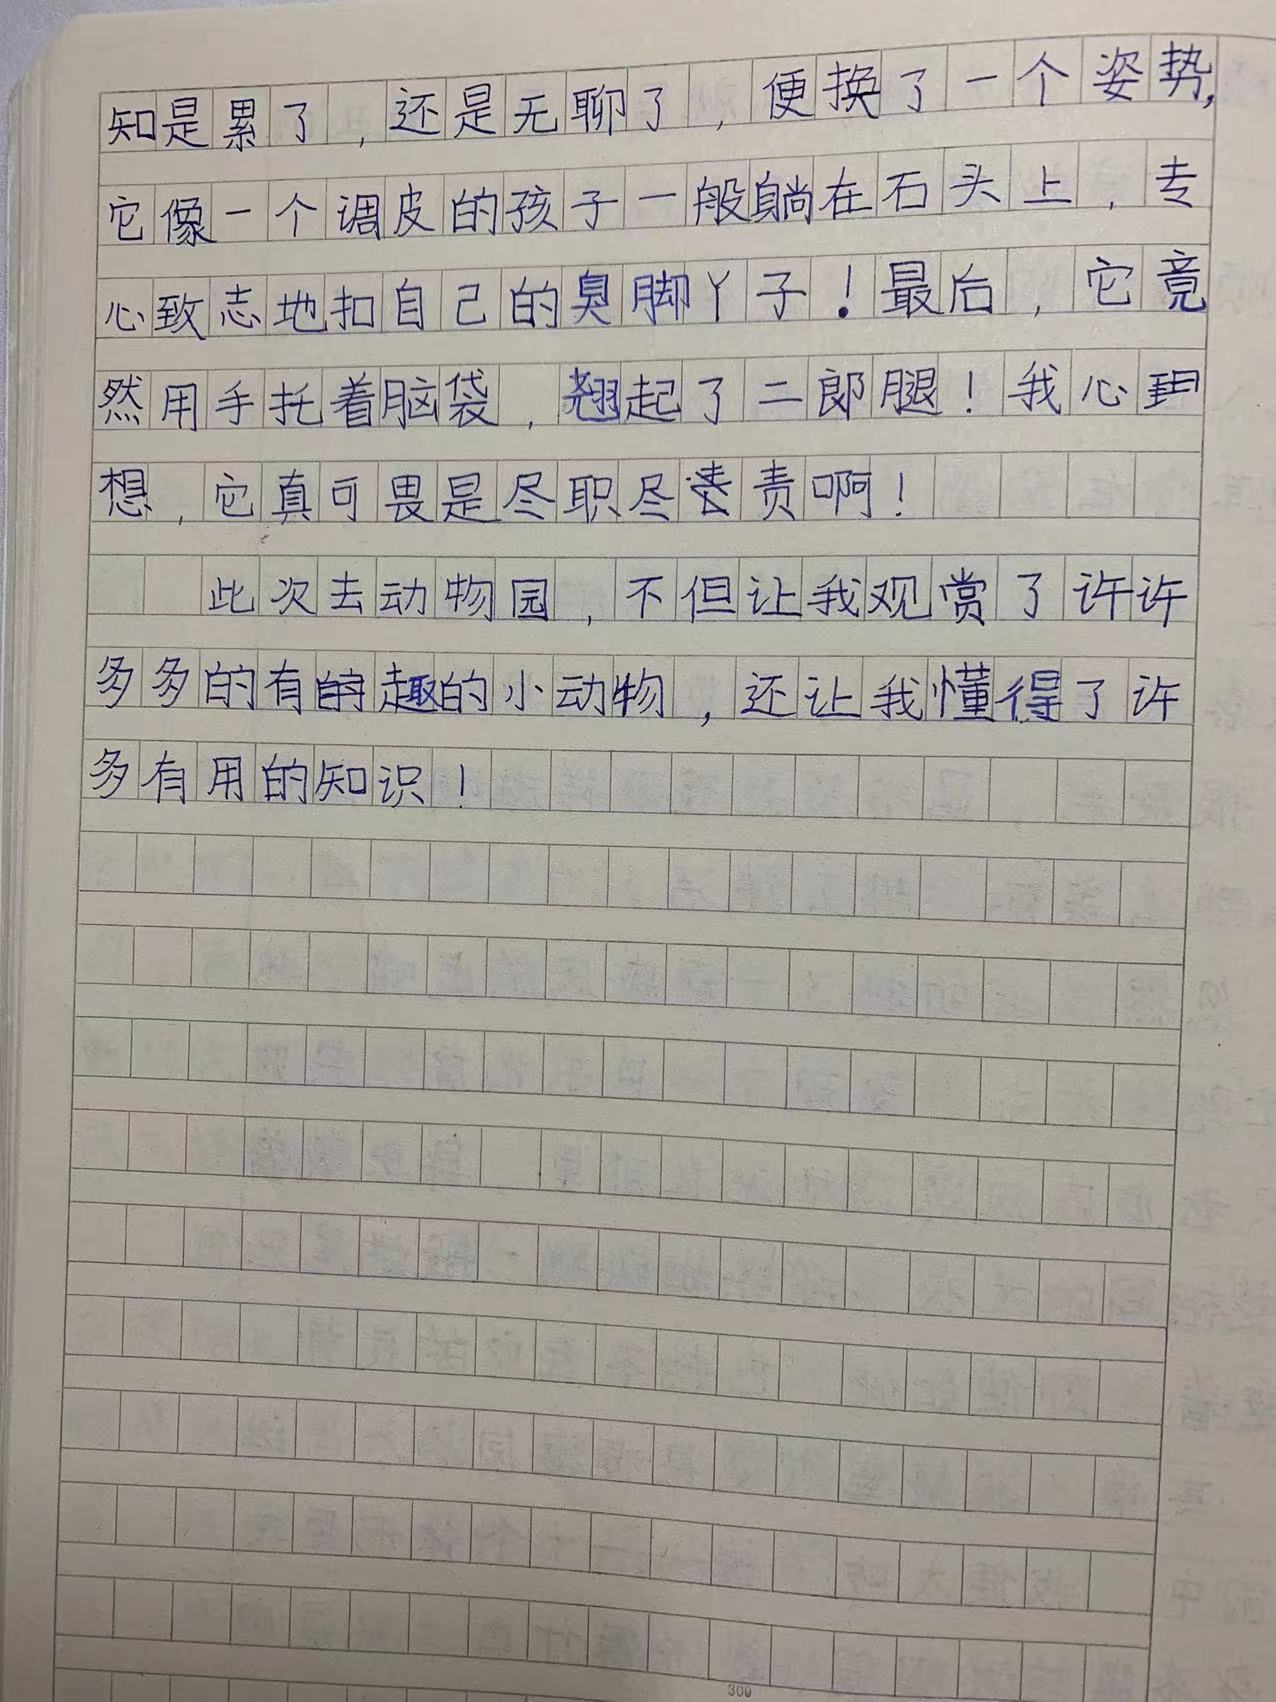 知是累了，还是无聊了，便换了一个姿势，
它像一个调皮的孩子一般躺在石头上，专
心致志地扣自己的臭脚丫子！最后，它竟
然用手托着脑袋，翘起了二郎腿！我心
想，它真可畏是尽职尽责啊！
此次去动物园，不但让我观赏了许许
多多的有趣的小动物，还让我懂得了许
多有用的知识！
300